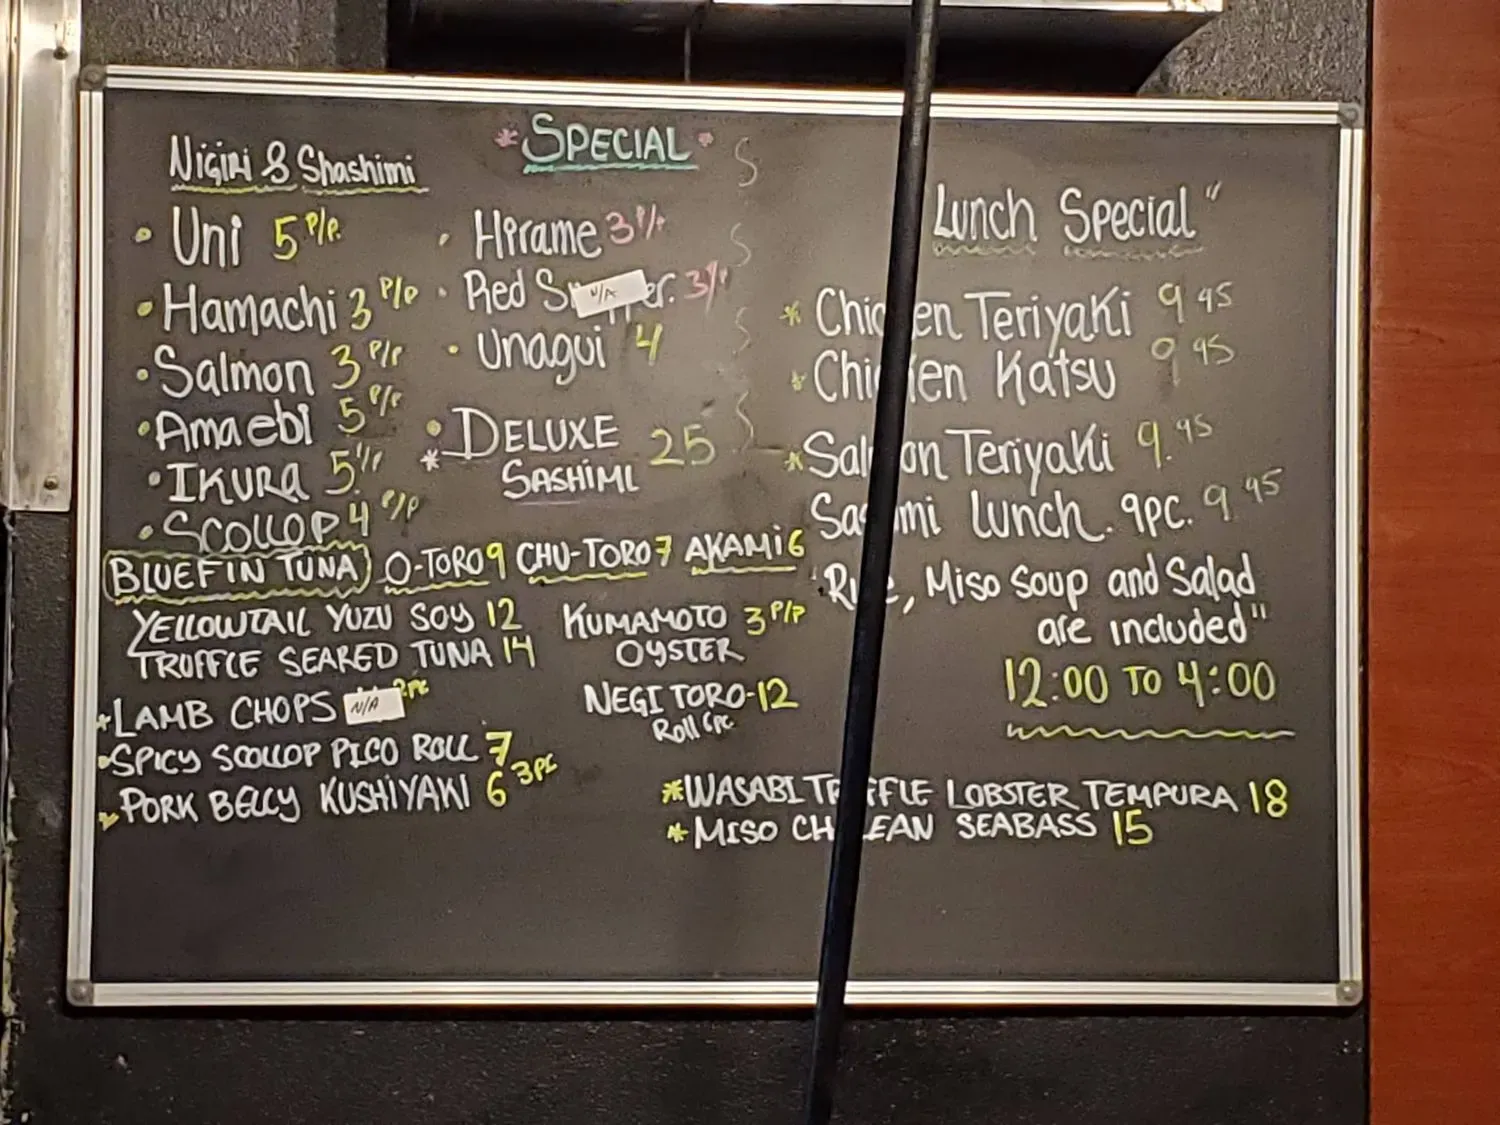 * SPECIAL *
Nigiri & Shashimi
• Uni 5 P/P.
• Hamachi 3 P/P
• Salmon 3 P/P
• Amaebi 5 P/P
• IKURA 5. P/P
• SCOLLOP 4 P/P
• Hirame 3 P/P
• Red S N/A er. 3/P
• Unagui 4
• * DELUXE 25
SASHIMI
BLUEFIN TUNA O-TORO 9 CHU-TORO 7 AKAMI 6
YELLOWTAIL YUZU SOY 12
TRUFFLE SEARED TUNA 14
* LAMB CHOPS N/A 2PC
• SPICY SCOLLOP PICO ROLL 7
PORK BELLY KUSHIYAKI 6 3PC
KUMAMOTO 3 P/P
OYSTER
NEGI TORO-12
Roll 6pc
Lunch Special"
* Chicken Teriyaki 9 95
* Chicken Katsu 9 95
* Salmon Teriyaki 9.95
Sashimi Lunch. 9pc. 9 95
"Rice, Miso Soup and Salad
are included"
12:00 TO 4:00
* WASABI TRUFFLE LOBSTER TEMPURA 18
* MISO CHILEAN SEABASS 15